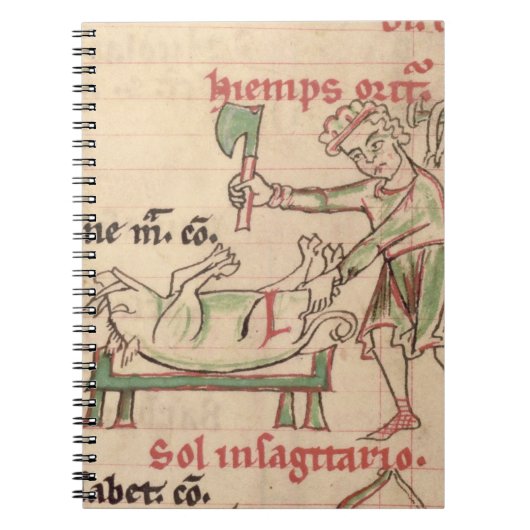 hiemps orit̃.
ne m̃. co̅.
Sol insagittario.
abet. co̅.